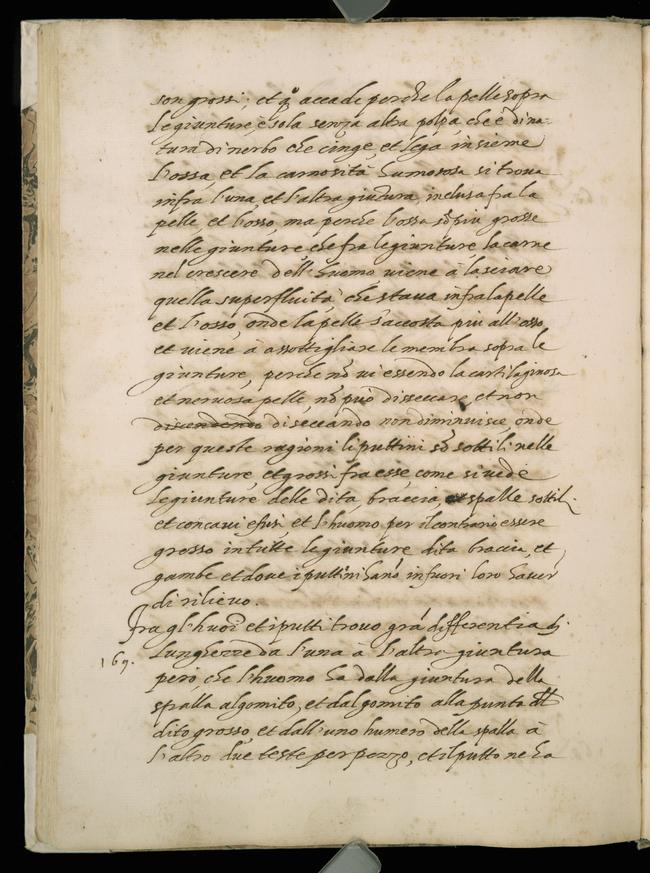 son grossi; et q.o accade perche la pelle sopra
le giunture è sola senza altra polpa, che è di na-
tura di nerbo che cinge, et lega insieme
l'ossa, et la carnosità humorosa si troua
infra l'una, et l'altra giūtura, inclusa fra la
pelle, et l'osso, ma perche l'ossa sō piu grosse
nelle giunture, che fra le giunture, la carne
nel crescere dell'huomo uiene à lasciare
quella superfluità, che staua infra la pelle
et l'osso, onde la pelle s'accosta piu all'osso,
et uiene à assottigliare le membra sopra le
giunture, perche nō ui essendo la cartilaginosa
et neruosa pelle, nō può disseccare, et non
diseccando non diminuisce, onde
per queste ragioni li puttini sō sottili nelle
giunture, et grossi fra esse, come si uede
le giunture delle dita, braccia spalle sottili
et concaui fusi, et l'huomo per il contrario essere
grosso in tutte le giunture dita braccia, et
gambe et doue i puttini hanō infuori loro hauer
di rilieuo.
Fra gl'huoī et i putti trouo grā differentia di
169. lunghezze da l'una a l'altra giuntura
però, che l'huomo ha dalla giuntura della
spalla al gomito, et dal gomito alla punta del
dito grosso, et dall'uno humero della spalla à
l'altro due teste per pezzo, et il putto ne ha